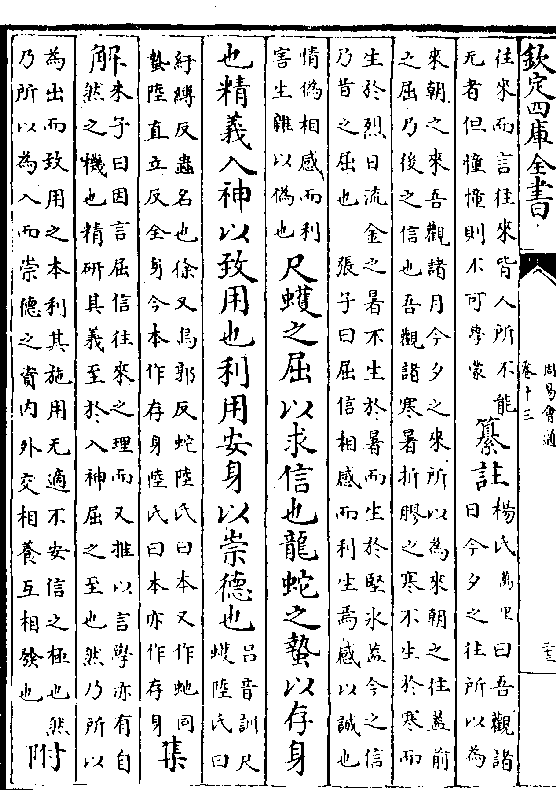 欽定四庫全書
周易會通
卷十三
往來而言往來皆人所不能
无者但憧憧則不可學蒙
纂註
楊氏萬里曰吾觀諸
日今夕之往所以為
來朝之來吾觀諸月今夕之來所以為來朝之往蓋前
之屈乃後之信也吾觀諸寒暑折膠之寒不生於寒而
生於烈日流金之暑不生於暑而生於堅氷蓋今之信
乃昔之屈也 張子曰屈信相感而利生焉感以誠也
情偽相感而利
害生雜以偽也
尺蠖之屈以求信也龍蛇之蟄以存身
也精義入神以致用也利用安身以崇德也
呂音訓尺
蠖陸氏曰
紆縛反蟲名也徐又烏郭反蛇陸氏曰本又作虵同
蟄陸直立反全身今本作存身陸氏曰本亦作存身
集
解
朱子曰因言屈信往來之理而又推以言學亦有自
然之機也精研其義至於入神屈之至也然乃所以
為出而致用之本利其施用无適不安信之極也然
乃所以為入而崇德之資内外交相養互相發也
附